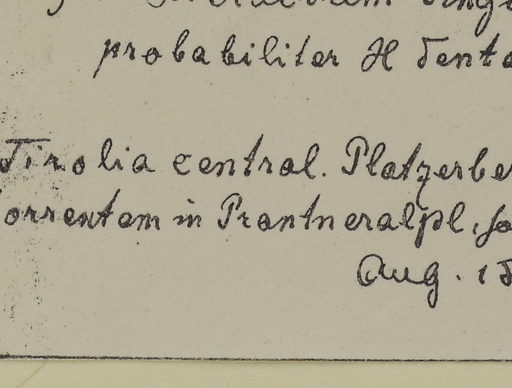 probabiliter H denta
Tirolia central. Platzerbe
orrentem in Prantneralpl. so
Aug. 15